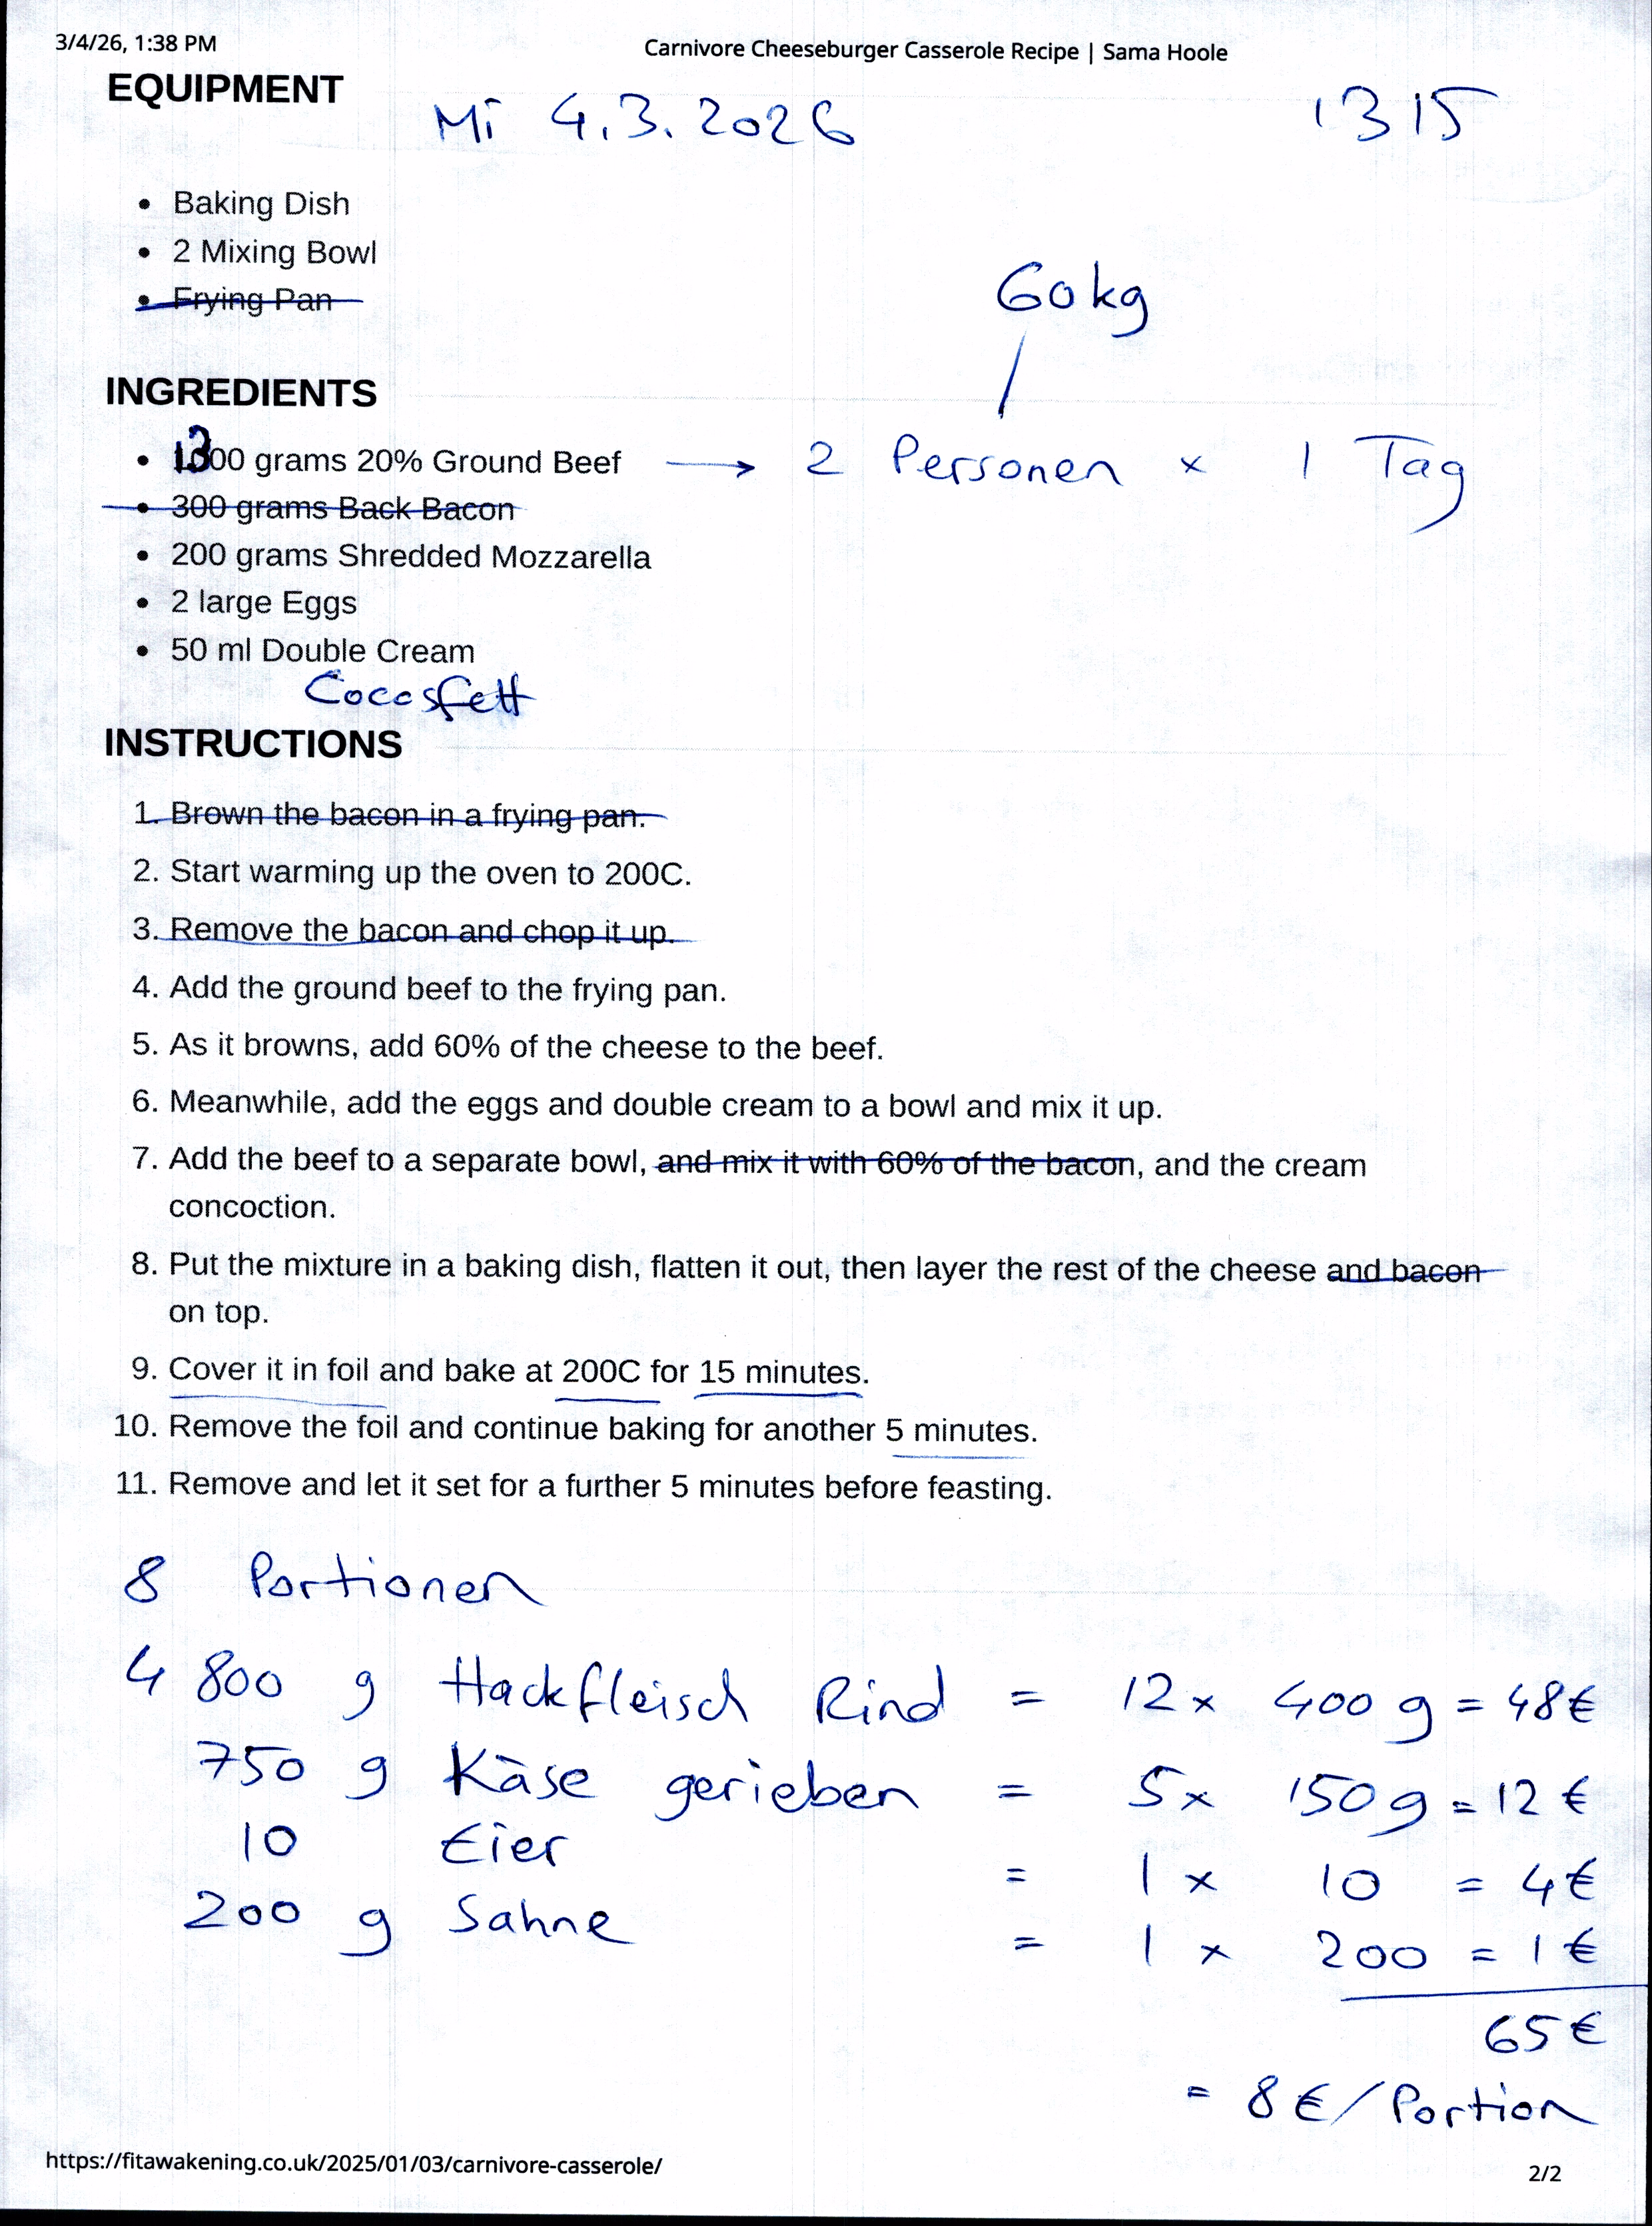 3/4/26, 1:38 PM Carnivore Cheeseburger Casserole Recipe | Sama Hoole
EQUIPMENT
Mi 4.3.2026 1315
• Baking Dish
• 2 Mixing Bowl
• Frying Pan
60kg
INGREDIENTS
• 1300 grams 20% Ground Beef → 2 Personen x 1 Tag
• 300 grams Back Bacon
• 200 grams Shredded Mozzarella
• 2 large Eggs
• 50 ml Double Cream
Cocosfett
INSTRUCTIONS
1. Brown the bacon in a frying pan.
2. Start warming up the oven to 200C.
3. Remove the bacon and chop it up.
4. Add the ground beef to the frying pan.
5. As it browns, add 60% of the cheese to the beef.
6. Meanwhile, add the eggs and double cream to a bowl and mix it up.
7. Add the beef to a separate bowl, and mix it with 60% of the bacon, and the cream
concoction.
8. Put the mixture in a baking dish, flatten it out, then layer the rest of the cheese and bacon
on top.
9. Cover it in foil and bake at 200C for 15 minutes.
10. Remove the foil and continue baking for another 5 minutes.
11. Remove and let it set for a further 5 minutes before feasting.
8 Portionen
4 800 g Hackfleisch Rind = 12x 400 g = 48€
750 g Käse gerieben = 5x 150g = 12 €
10 Eier = 1 x 10 = 4€
200 g Sahne = 1 x 200 = 1€
65€
= 8€/Portion
https://fitawakening.co.uk/2025/01/03/carnivore-casserole/ 2/2